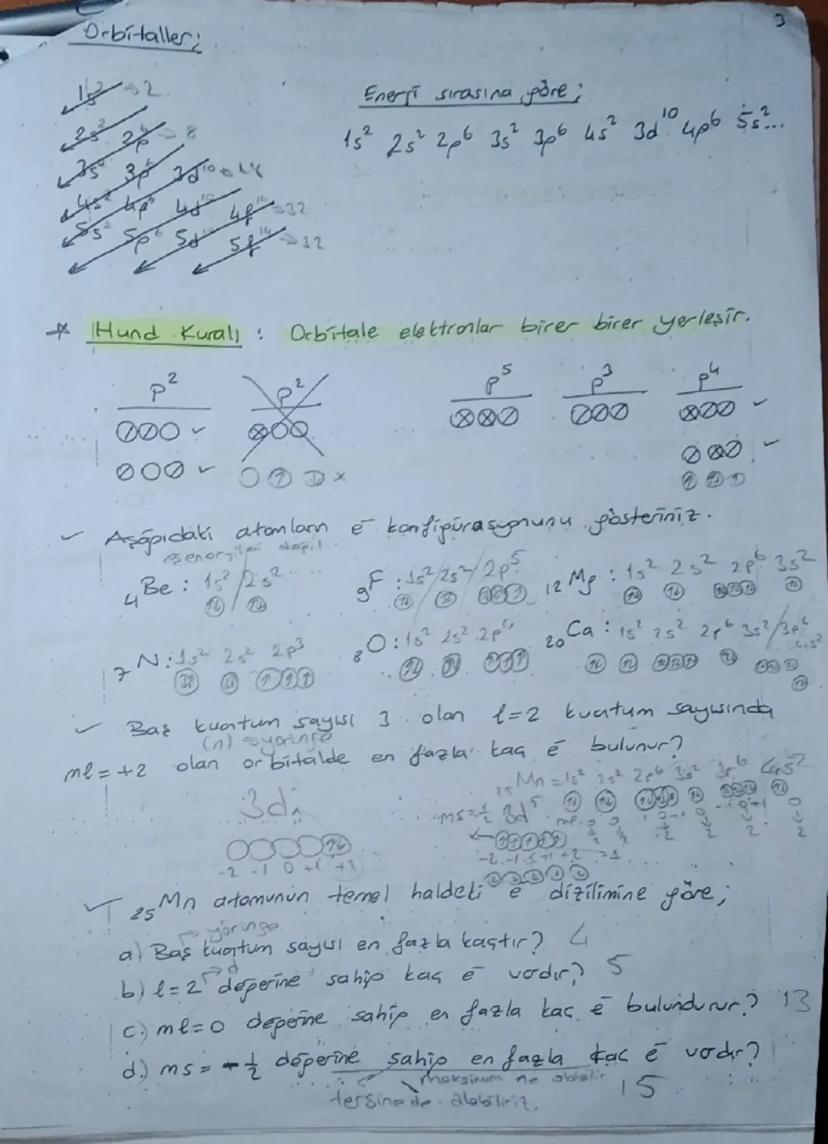 3
Orbitaller;
1s² → 2
2s² 2p⁶ → 8
3s² 3p⁶ 3d¹⁰ → 18
4s² 4p⁶ 4d¹⁰ 4f¹⁴ → 32
5s² 5p⁶ 5d¹⁰ 5f¹⁴ → 32
Enerji sırasına göre;
1s² 2s² 2p⁶ 3s² 3p⁶ 4s² 3d¹⁰ 4p⁶ 5s²...
* Hund Kuralı : Orbitale elektronlar birer birer yerleşir.
p² p² p⁵ p³ p⁴
✓ Aşağıdaki atomların ē konfigürasyonunu gösteriniz.
değil
₄Be : 1s² / 2s² ₉F : 1s² / 2s² / 2p⁵ ₁₂Mg : 1s² 2s² 2p⁶ 3s²
₇N : 1s² 2s² 2p³ ₈O : 1s² 2s² 2p⁴ ₂₀Ca : 1s² 2s² 2p⁶ 3s² / 3p⁶
4s²
✓ Baş kuantum sayısı 3 olan l=2 kuantum sayısında
(n) → yörünge
ml = +2 olan orbitalde en fazla kaç ē bulunur?
3d
-2 -1 0 +1 +2
₂₅Mn = 1s² 2s² 2p⁶ 3s² 3p⁶ 4s²
ms = ½ 3d⁵
✓ ₂₅Mn atomunun temel haldeki ē dizilimine göre;
→ yörünge
a) Baş kuantum sayısı en fazla kaçtır? 4
→ d
b) l=2 değerine sahip kaç ē vardır? 5
c) ml=0 değerine sahip en fazla kaç ē bulundurur? 13
d) ms = -½ değerine sahip en fazla kaç ē vardır?
maksimum ne olabilir
tersine de alabiliriz. 15